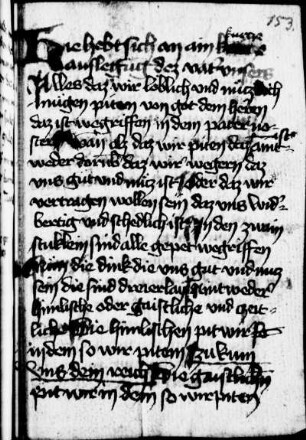 153
Hie hebt sich an ain kurcze
auslegung dez vater unsers
Alles daz wir loblich und nucz
mügen piten von got dem herren
daz ist wegriffen in dem pater no
ster wan als daz wir piten daz ains
weder darüb daz wir wegern daz
uns gut und nücz ist oder daz wir
vertragen wollen sein daz uns wid
bertig und schedlich ist in den zwain
stuklein sind alle gepet wegriffen
Nun die dink die uns gut und nucz
sein die sind dreierlay aintweder
himlische oder gaistliche und czeit
liche Die himlischen pit wir
in dem so wir piten Zukum
uns dein reich Die gaistlichen
pit wir in dem so wir piten